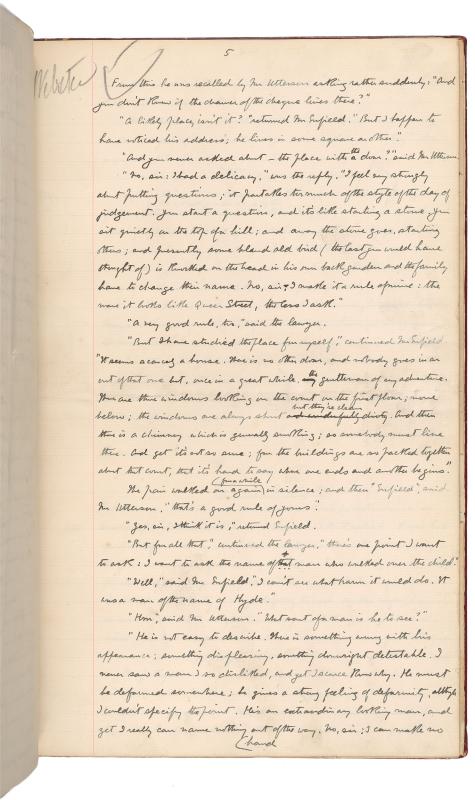 5
Webster
From this he was recalled by Mr Utterson asking rather suddenly: "And
you don't know if the drawer of the cheque lives there?"
"A likely place, isn't it?" returned Mr Enfield. "But I happen to
have noticed his address; he lives in some square or other."
"And you never asked about — the place with the door?" said Mr Utterson.
"No, sir: I had a delicacy," was the reply. "I feel very strongly
about putting questions; it partakes too much of the style of the day of
judgement. You start a question, and it's like starting a stone. You
sit quietly on the top of a hill; and away the stone goes, starting
others; and presently some bland old bird (the last you would have
thought of) is knocked on the head in his own back garden and the family
have to change their name. No, sir, I make it a rule of mine: the
more it looks like Queer Street, the less I ask."
"A very good rule, too," said the lawyer.
"But I have studied the place for myself," continued Mr Enfield
"It seems scarcely a house. There is no other door, and nobody goes in or
out of that one but, once in a great while, the gentleman of my adventure.
There are three windows looking on the court on the first floor; none
below; the windows are always shut
but they're clean
and wonderfully dirty. And then
there is a chimney which is generally smoking; so somebody must live
there. And yet it's not so sure; for the buildings are so packed together
about that court, that it's hard to say where one ends and another begins."
The pair walked
for a while
on again in silence; and then "Enfield", said
Mr Utterson, "that's a good rule of yours."
"Yes, sir, I think it is," returned Enfield.
"But for all that," continued the lawyer, "there's one point I want
to ask: I want to ask the name of that man who walked over the child."
"Well," said Mr Enfield, "I can't see what harm it would do. It
was a man of the name of Hyde."
"Hm," said Mr Utterson. "What sort of man is he to see?"
"He is not easy to describe. There is something wrong with his
appearance; something displeasing, something downright detestable. I
never saw a man I so disliked, and yet I scarce know why. He must
be deformed somewhere; he gives a strong feeling of deformity, although
I couldn't specify the point. He's an extraordinary looking man, and
yet I really can name nothing out of the way. No, sir; I can make no
hand